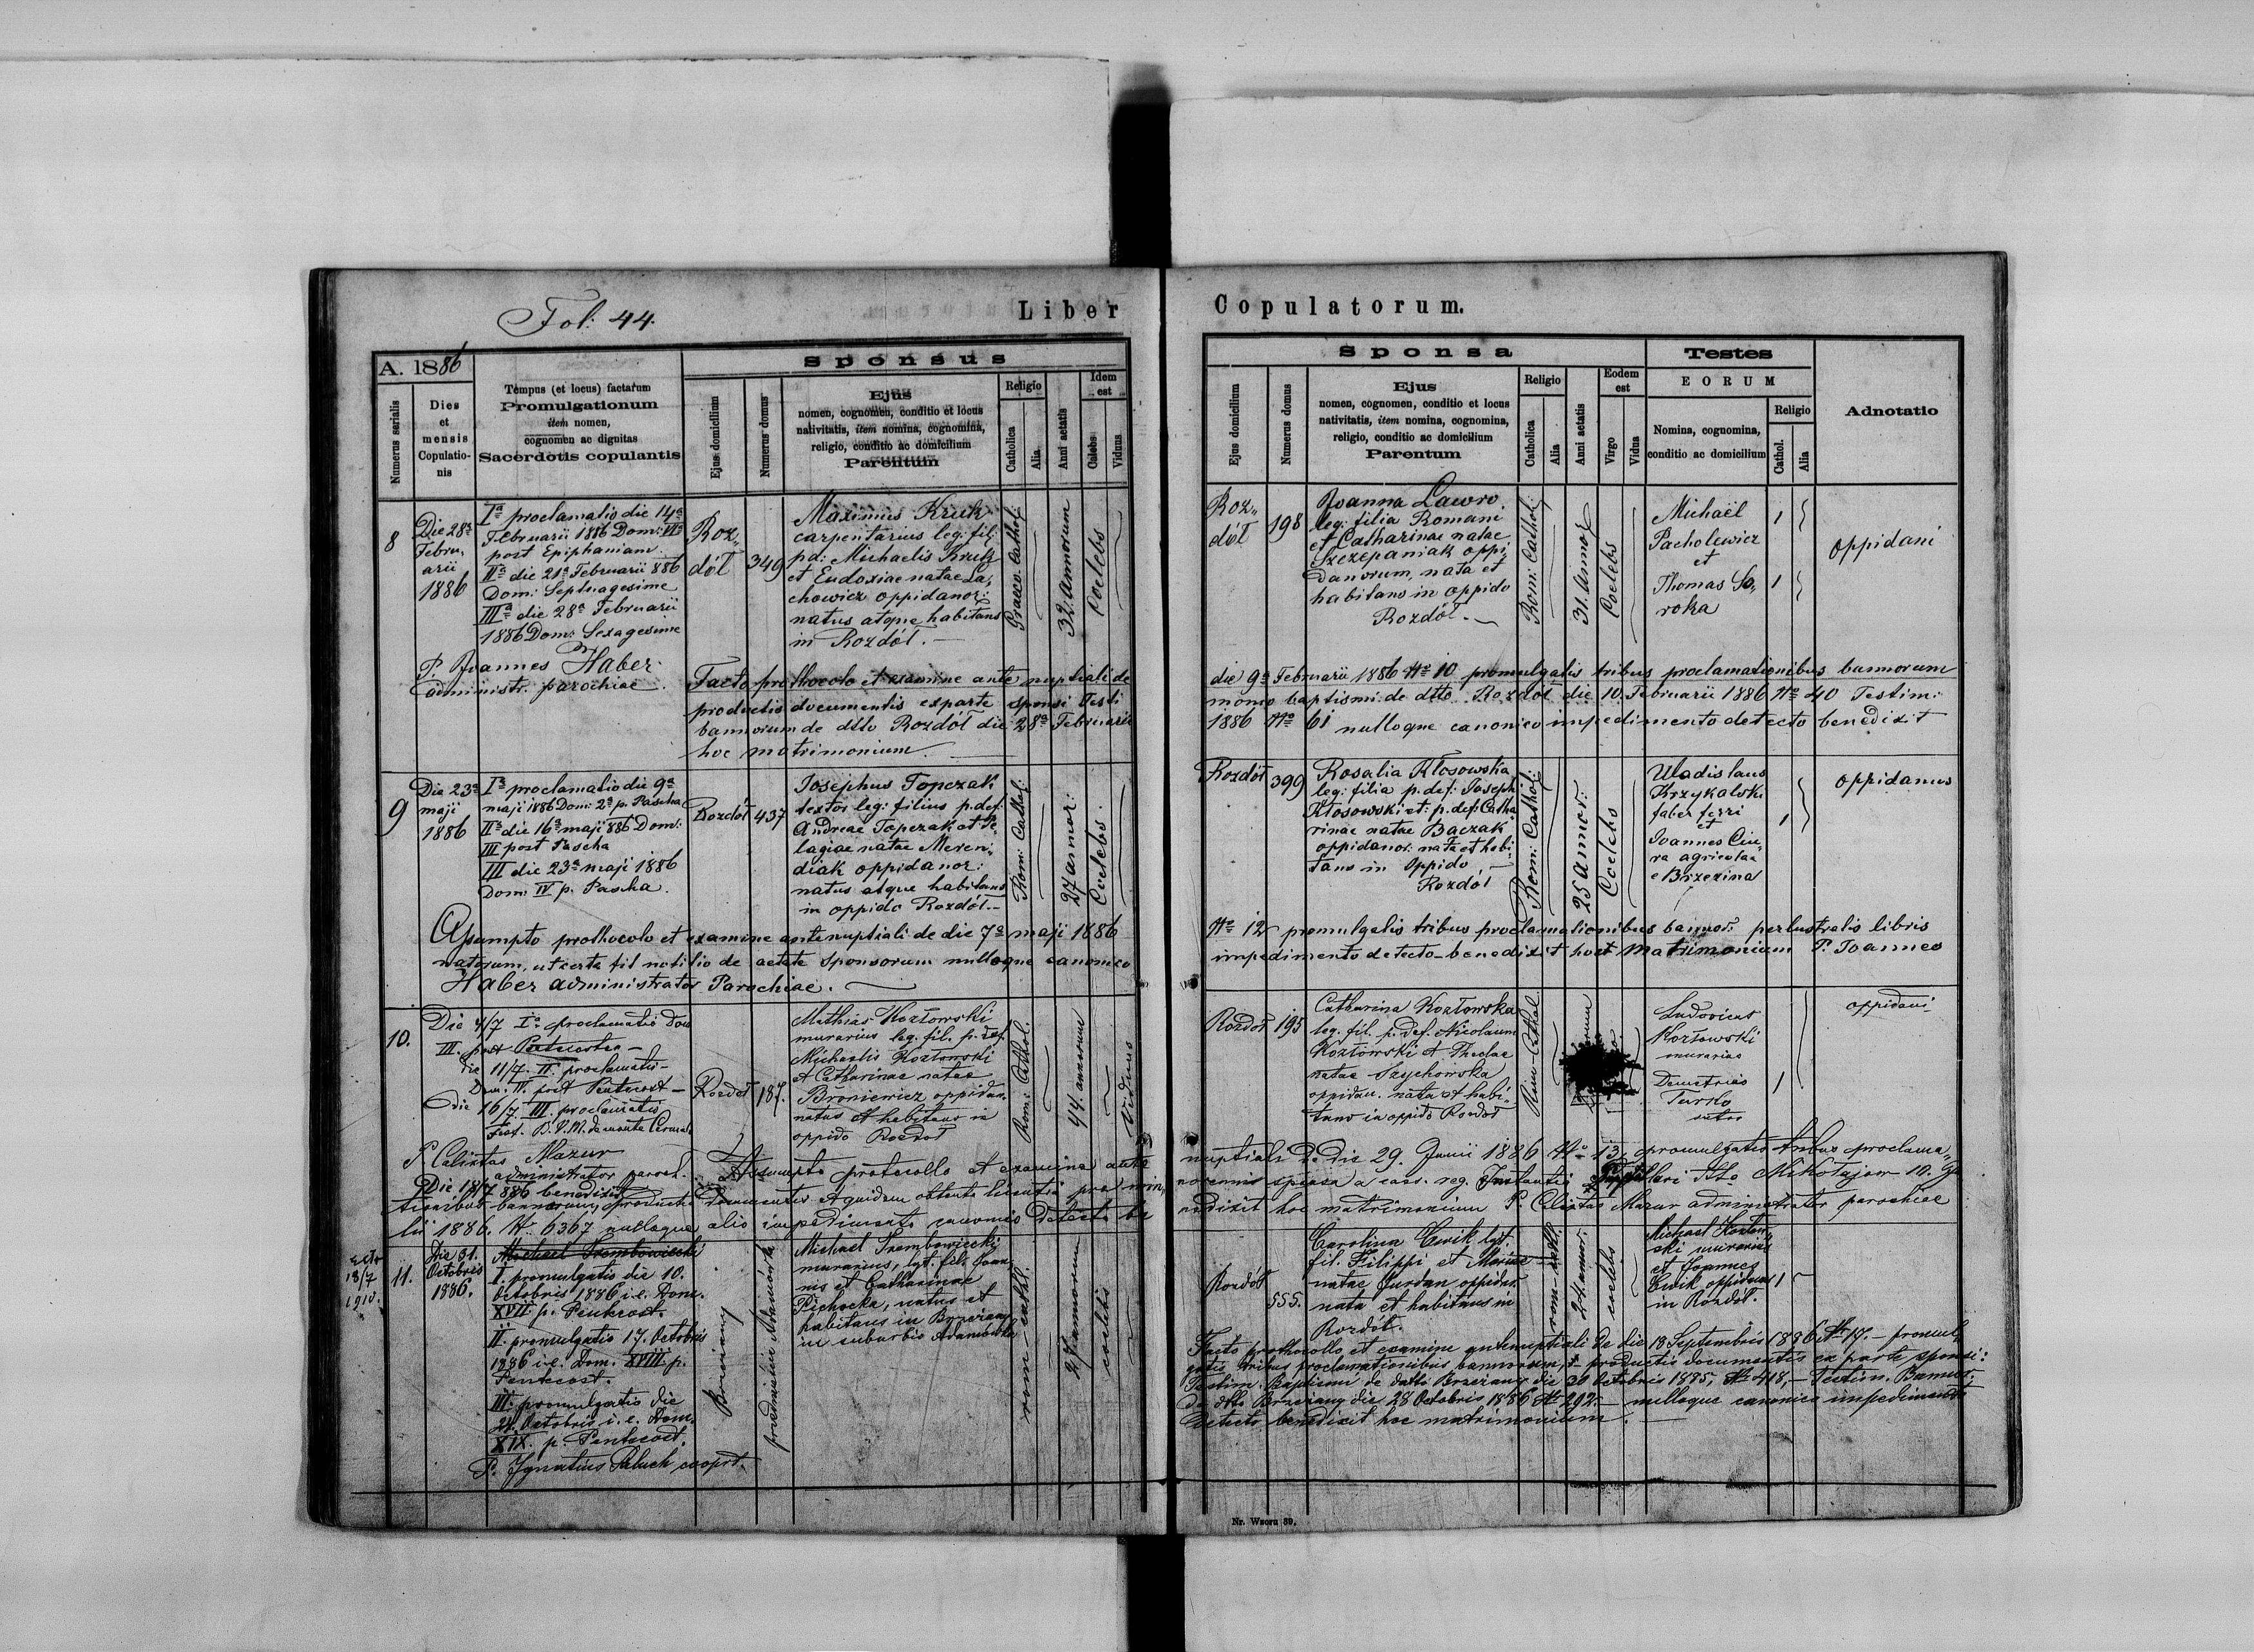 Fol: 44.
Liber
Copulatorum.
A. 1886
Numerus serialis
Dies
et
mensis
Copulatio-
nis
Tempus (et locus) factarum
Promulgationum
item nomen,
cognomen ac dignitas
Sacerdotis copulantis
Sponsus
Ejus domicilium
Numerus domus
Ejus
nomen, cognomen, conditio et locus
nativitatis, item nomina, cognomina,
religio, conditio ac domicilium
Parentum
Religio
Catholica
Alia
Anni aetatis
Idem
est
Caelebs
Viduus
Sponsa
Ejus domicilium
Numerus domus
Ejus
nomen, cognomen, conditio et locus
nativitatis, item nomina, cognomina,
religio, conditio ac domicilium
Parentum
Religio
Catholica
Alia
Anni aetatis
Eodem
est
Virgo
Vidua
Testes
EORUM
Nomina, cognomina,
conditio ac domicilium
Religio
Cathol.
Alia
Adnotatio
8
Die 28a
Febru„
arii
1886
Ia proclamatio die 14a
Februarii 1886 Dom: VIa
post Epiphaniam
IIa die 21a Februarii 886
Dom: Septuagesime
IIIa die 28a Februarii
1886 Dom: Sexagesime
P. Joannes Haber
administr. parochiae.
Roz„
dół
349
Maximus Kruk
carpentarius leg: fil:
p.d: Michaelis Kruk
et Eudoxiae natae La„
chowicz oppidanor:
natus atque habitans
in Rozdół.
Graeco. Cathol:
32. annorum
Coelebs
Roz„
dół
198
Joanna Lawro
leg: filia Romani
et Catharinae natae
Szczepaniak oppi„
danorum, nata et
habitans in oppido
Rozdół.
Rom: Cathol:
31. annor
Coelebs
Michaël
Pacholewicz
et
Thomas So„
roka
1
1
oppidani
Facto prothocolo et examine ante nuptiali de
die 9a Februarii 1886 No 10 promulgatis tribus proclamationibus bannorum
productis documentis exparte sponsi Testi
monio baptismi: de dtto Rozdół die 10. Februarii 1886 No 40 Testim:
bannorum de dtto Rozdół die 28a Februarii
1886 No 61 nulloque canonico impedimento detecto benedixit
hoc matrimonium
9
Die 23a
maji
1886
Ia proclamatio die 9a
maji 1886 Dom: 2a p. Pascha
IIa die 16a maji 886 Dom:
III post Pascha
III die 23a maji 1886
Dom: IV p. Pascha.
Rozdół
437
Josephus Topczak
textor leg: filius p.def:
Andreae Topczak et Pe„
lagiae natae Meren„
diak oppidanor:
natus atque habitans
in oppido Rozdół.
Rom: Cathol:
27 annor:
Coelebs.
Rozdół
399
Rosalia Kłosowska
leg: filia p.def: Joseph
Kłosowski et: p.def: Catha„
rinae natae Baczak
oppidanor: nata et habi„
tans in Oppido
Rozdół
Rom: Cathol:
25 annor:
Coelebs
Uladislaus
Krzykalski
faber ferri
et
Joannes Ciu„
ra agricolaa
e Brzezina
1
oppidanus
Assumpto prothocolo et examine antenuptiali de die 7a maji 1886
No 12 promulgatis tribus proclamationibus bannor: perlustratis libris
natorum, ut certa fit notitio de aetate sponsorum nulloque canonico
impedimento detecto benedixit hoct Matrimonium P. Joannes
Haber administrator Parochiae.
10.
Die 4/7 Ia proclamatio Dom
III. post Pentecosten
die 11/7. II. proclamatio
Dom. IV. post Pentecost
die 16/7 III. proclamatio
Fest. B.V.M. de monte Carmel.
P. Calixtus Mazur
administrator paroch.
Die 18/7 886 benedixit
Rozdół
187.
Mathias Kozłowski
murarius leg. fil. p. def.
Michaelis Kozłowski
et Catharinae natae
Broniewicz oppidan.
natus et habitans in
oppido Rozdół
Rom: Cathol.
44. annorum
Viduus
Rozdół
195
Catharina Kozłowska
leg. fil. p. def. Nicolaum
Kozłowski et Theclae
natae Szychowska
oppidan. nata et habi„
tans in oppido Rozdół
Rom: Cathol.
Ludovicus
Kozłowski
murarius
Demetrius
Turko
sutor
1
oppidani
Assumpto protocollo et examine ante
nuptiali de die 29. Junii 1886 No 13. promulgatis tribus proclama„
tionibus bannorum, productis documentis et quidem obtenta licentia pro min„
norennis sponsa a caes. reg. Instantia Pupillari dto Mikołajow 10. Ju
lii 1886. N. 6367 nulloque alio impedimento canonico detecto be
nedixit hoc matrimonium P. Calixtus Mazur administrator parochiae
Extr
18/7
1910.
11.
Die 31.
Octobris
1886.
Michael Trembowiecki
I. promulgatio die 10.
Octobris 1886 i.e. Dom.
XVII p. Pentecost.
II. promulgatio 17. Octobris
1886 i.e. Dom. XVIII p.
Pentecost.
III. promulgatio die
24. Octobris i.e. Dom.
XIX. p. Pentecost.
P. Ignatius Paluch cooprt.
Brzeżany
przedmieście Adamówka
Michael Trembowiecki
murarius, lgt. fil. Joan„
nis et Catharinae
Pichocka, natus et
habitans in Brzeżany
in suburbio Adamówka
rom-cathl.
27 annorum
coelebs
Rozdół
555.
Carolina Cwik lgt.
fil. Filippi et Mariae
natae Jurdan oppidan.
nata et habitans in
Rozdół.
rom-cathl.
24. annor.
coelebs
Michael Kozłow„
ski murarius
et Joannes
Cwik oppidanus
in Rozdół.
1
Facto prothocollo et examine antenuptiali de die 18 Septembris 1886 No 17. – promul„
gatis tribus proclamationibus bannorum, productis documentis ex parte sponsi:
Testim. Baptismi de datto Brzeżany die 30 Octobris 1885. No 418, – Testim. Bannor.
de dtto Brzeżany die 28 Octobris 1886 No 292. – nulloque canonico impedimento
detecto benedixit hoc matrimonium.
Nr. Wzoru 39.